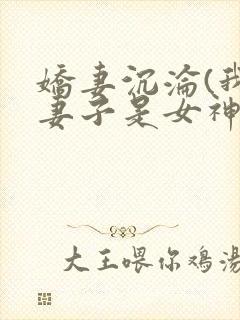 嬌妻沉淪(我
妻子是女神
大王喂你鸡湯